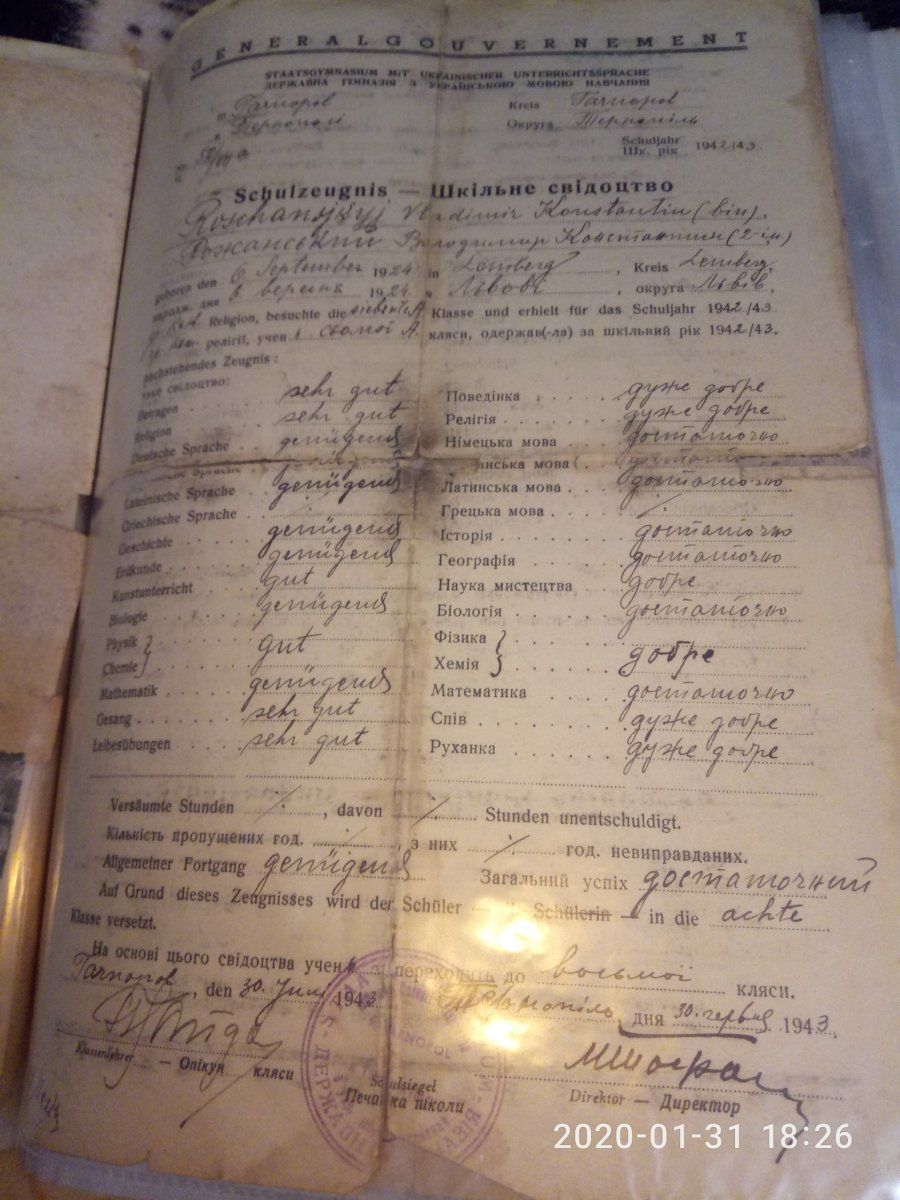 GENERALGOUVERNEMENT
STAATSGYMNASIUM MIT UKRAINISCHER UNTERRICHTSSPRACHE
ДЕРЖАВНА ГІМНАЗІЯ З УКРАЇНСЬКОЮ МОВОЮ НАВЧАННЯ
in Tarnopol Kreis Tarnopol
в Тернополі Округа Тернопіль
Schuljahr
Шк. рік 1942/43.
Schulzeugnis — Шкільне свідоцтво
Vladimir Konstantin (bin).
Рожанський Володимир Константин (2-ім)
geboren den 6 September 1924 in Lemberg, Kreis Lemberg,
народж. дня 6 вересня 1924 Львові, округа Львів.
Religion, besuchte die siebente A Klasse und erhielt für das Schuljahr 1942/43.
релігії, учен ь сьомої А. кляси, одержав(-ла) за шкільний рік 1942/43.
nachstehendes Zeugnis:
таке свідоцтво:
Betragen sehr gut Поведінка дуже добре
Religion sehr gut Релігія дуже добре
Deutsche Sprache genügend Німецька мова достаточно
Sprache мова
Lateinische Sprache genügend Латинська мова достаточно
Griechische Sprache Грецька мова ·/.
Geschichte genügend Історія достаточно
Erdkunde genügend Географія достаточно
Kunstunterricht gut Наука мистецтва добре
Biologie genügend Біологія достаточно
Physik } Фізика }
Chemie } gut Хемія } добре
Mathematik genügend Математика достаточно
Gesang sehr gut Спів дуже добре
Leibesübungen sehr gut Руханка дуже добре
Versäumte Stunden ·/., davon ·/. Stunden unentschuldigt.
Кількість пропущених год. ·/., з них ·/. год. невиправданих.
Allgemeiner Fortgang genügend Загальний успіх достаточний
Auf Grund dieses Zeugnisses wird der Schüler — Schülerin — in die achte
Klasse versetzt.
На основі цього свідоцтва учень переходить до восьмої кляси.
Tarnopol, den 30. Juni 1943 Тернопіль, дня 30. червня 1943.
Klassenlehrer
— Опікун кляси
Schulsiegel
Печатка школи
Direktor — Директор
2020-01-31 18:26